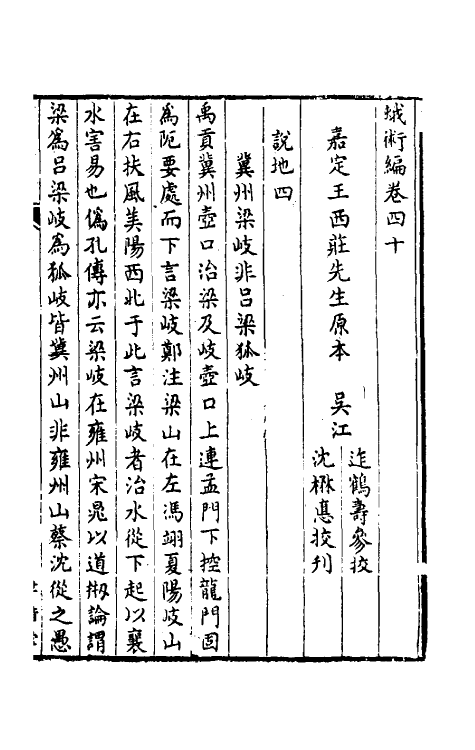 蛾術編卷四十
嘉定王西莊先生原本　吳江
迮鶴壽參挍
沈楙悳挍刊
說地四
冀州梁岐非呂梁狐岐
禹貢冀州壺口治梁及岐壺口上連孟門下控龍門固
爲阨要處而下言梁岐鄭注梁山在左馮翊夏陽岐山
在右扶風美陽西北于此言梁岐者治水從下起以襄
水害易也僞孔傳亦云梁岐在雍州宋晁以道剏論謂
梁爲呂梁岐爲狐岐皆冀州山非雍州山蔡沈從之愚